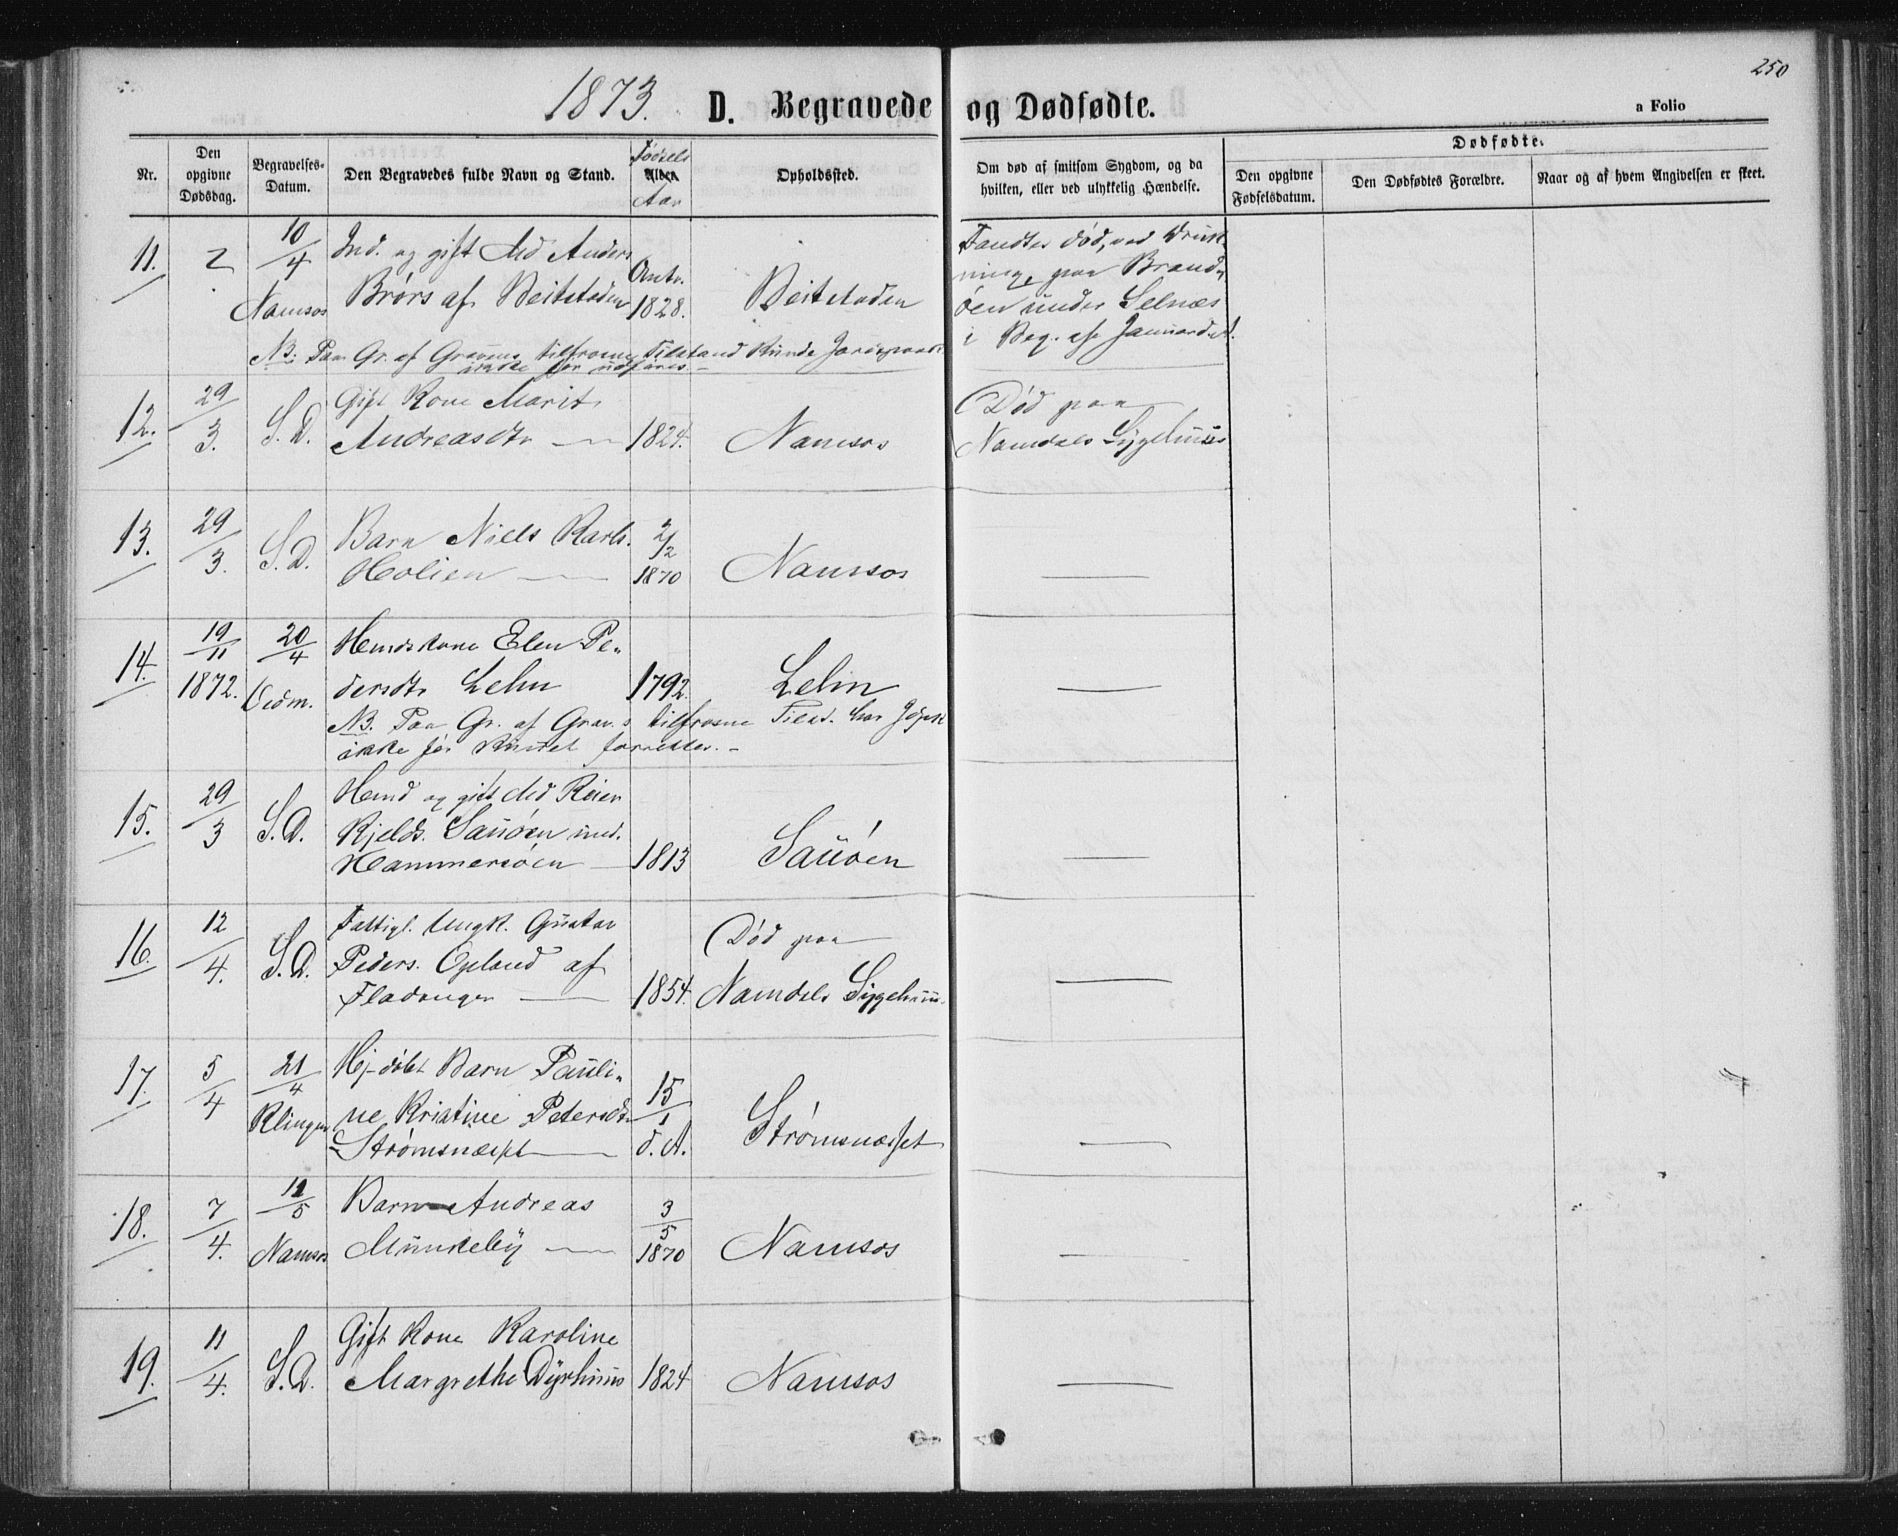 250
1873. D. Begravede og Dødfødte.
a Folio
Nr.
Den opgivne Dødsdag.
Begravelses-Datum.
Den Begravedes fulde Navn og Stand.
Fødsels Alder. Aar
Opholdssted.
Om død af smitsom Sygdom, og da hvilken, eller ved ulykkelig Hændelse.
Dødfødte.
Den opgivne Fødselsdatum.
Den Dødfødtes Forældre.
Naar og af hvem Angivelsen er skeet.
11. 2 10/4 Namsos
Ind. og gift Md Anders
Brørs af Beitstaden
Omtr. 1828.
Beitstaden
Fandtes død, ved Druk
ning, paa Brand-
öen under Selnæs
i Beg. af Januar
NB: Paa Gr. af Gravens tilfrosne Tilstand kunde
ikke før udføres.
12. 29/3. S.D.
Gift Kone Marit
Andreasdtr 1824.
Namsos
Død paa
Namdals Sygehuus
13. 29/3. S.D.
Barn Niels Karls.
Holien
2/2 1870
Namsos
14. 19/11 1872. 20/4
Huuskone Elen Pe-
dersdtr Lehn 1792.
Lehn
NB. Paa Gr. af Grav.s tilfrosne Tilst. har
ikke før kunnet forrettes.
15. 29/3 S.D.
Huusmd og gift Md Reier
Kjelds. Sauöen ind.
Hammersöen 1813
Sauöen
16. 12/4. S.D.
Fattigl. Ungk. Gustav
Peders. Opland af
Fladanger 1854.
Død paa
Namdals Sygehuus
17. 5/4 21/4 Klingen
Hj-döbt Barn Pauli-
ne Kristine Petersdtr
Strömsnæsset
15/1 d.A.
Strömsnæsset
18. 7/4. 12/5 Namsos
Barn Andreas
Munkeby
3/5 1870
Namsos
19. 11/4. S.D.
Gift Kone Karoline
Margrethe Dyrhuus 1824
Namsos